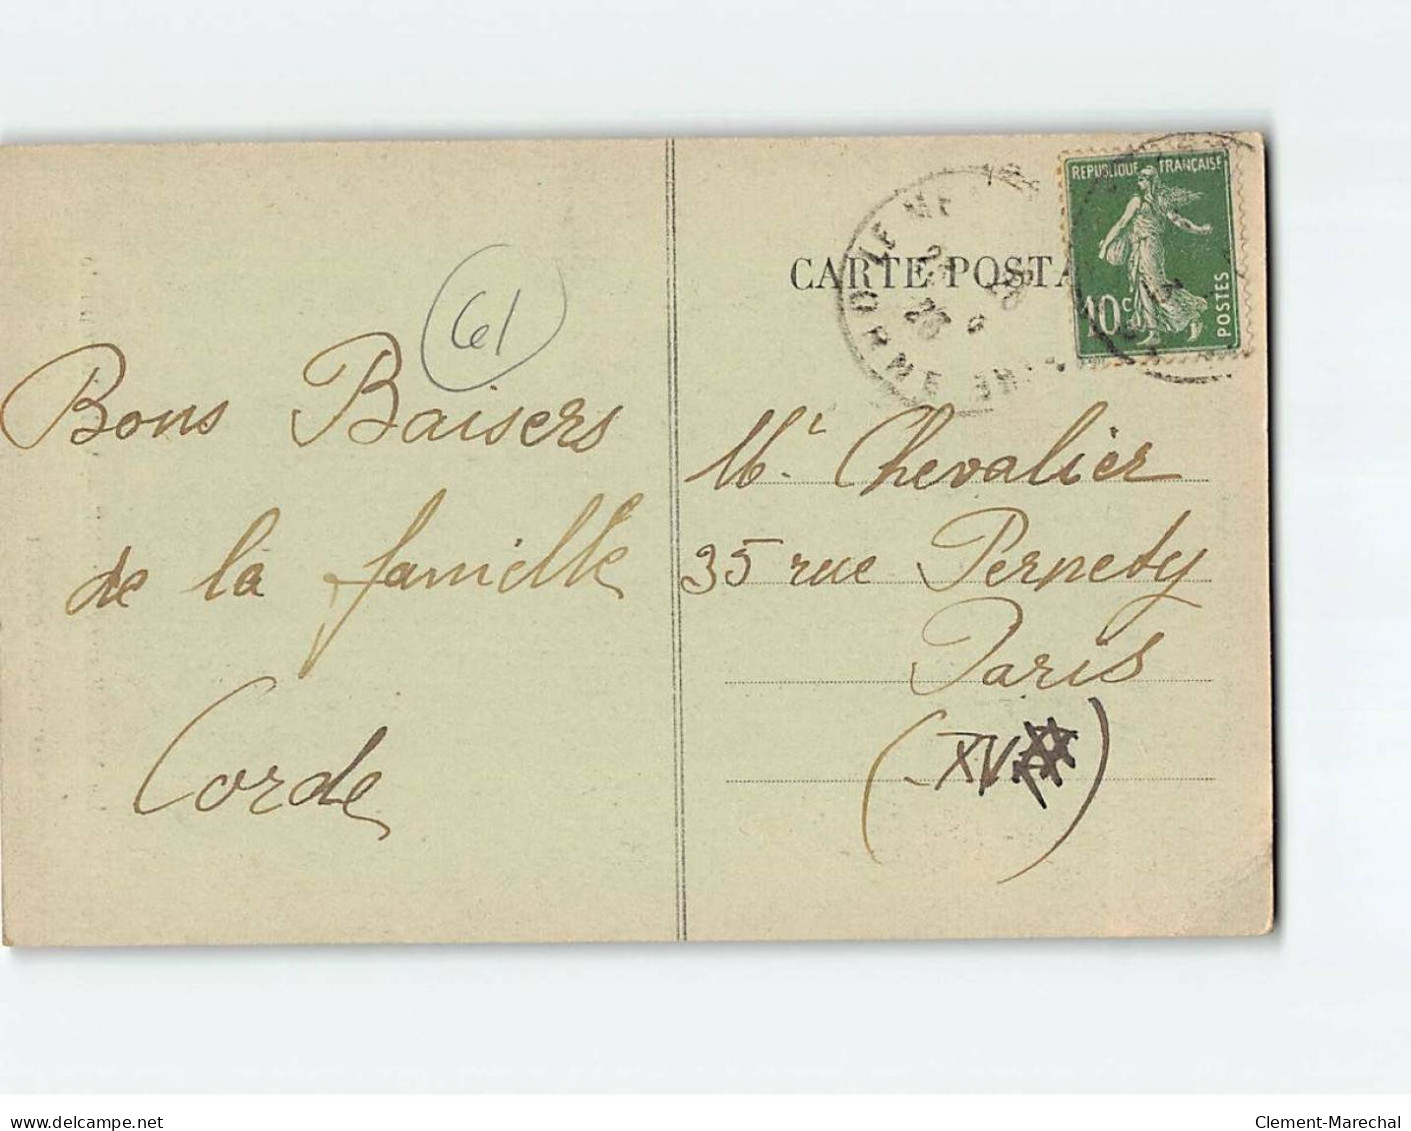 61
Bons Baisers
de la famille
Corde
CARTE POSTA
RÉPUBLIQUE FRANÇAISE
10c
POSTES
ORNE
Mr. Chevalier
35 rue Pernety
Paris
(XV
delcampe.net
Clement-Marechal